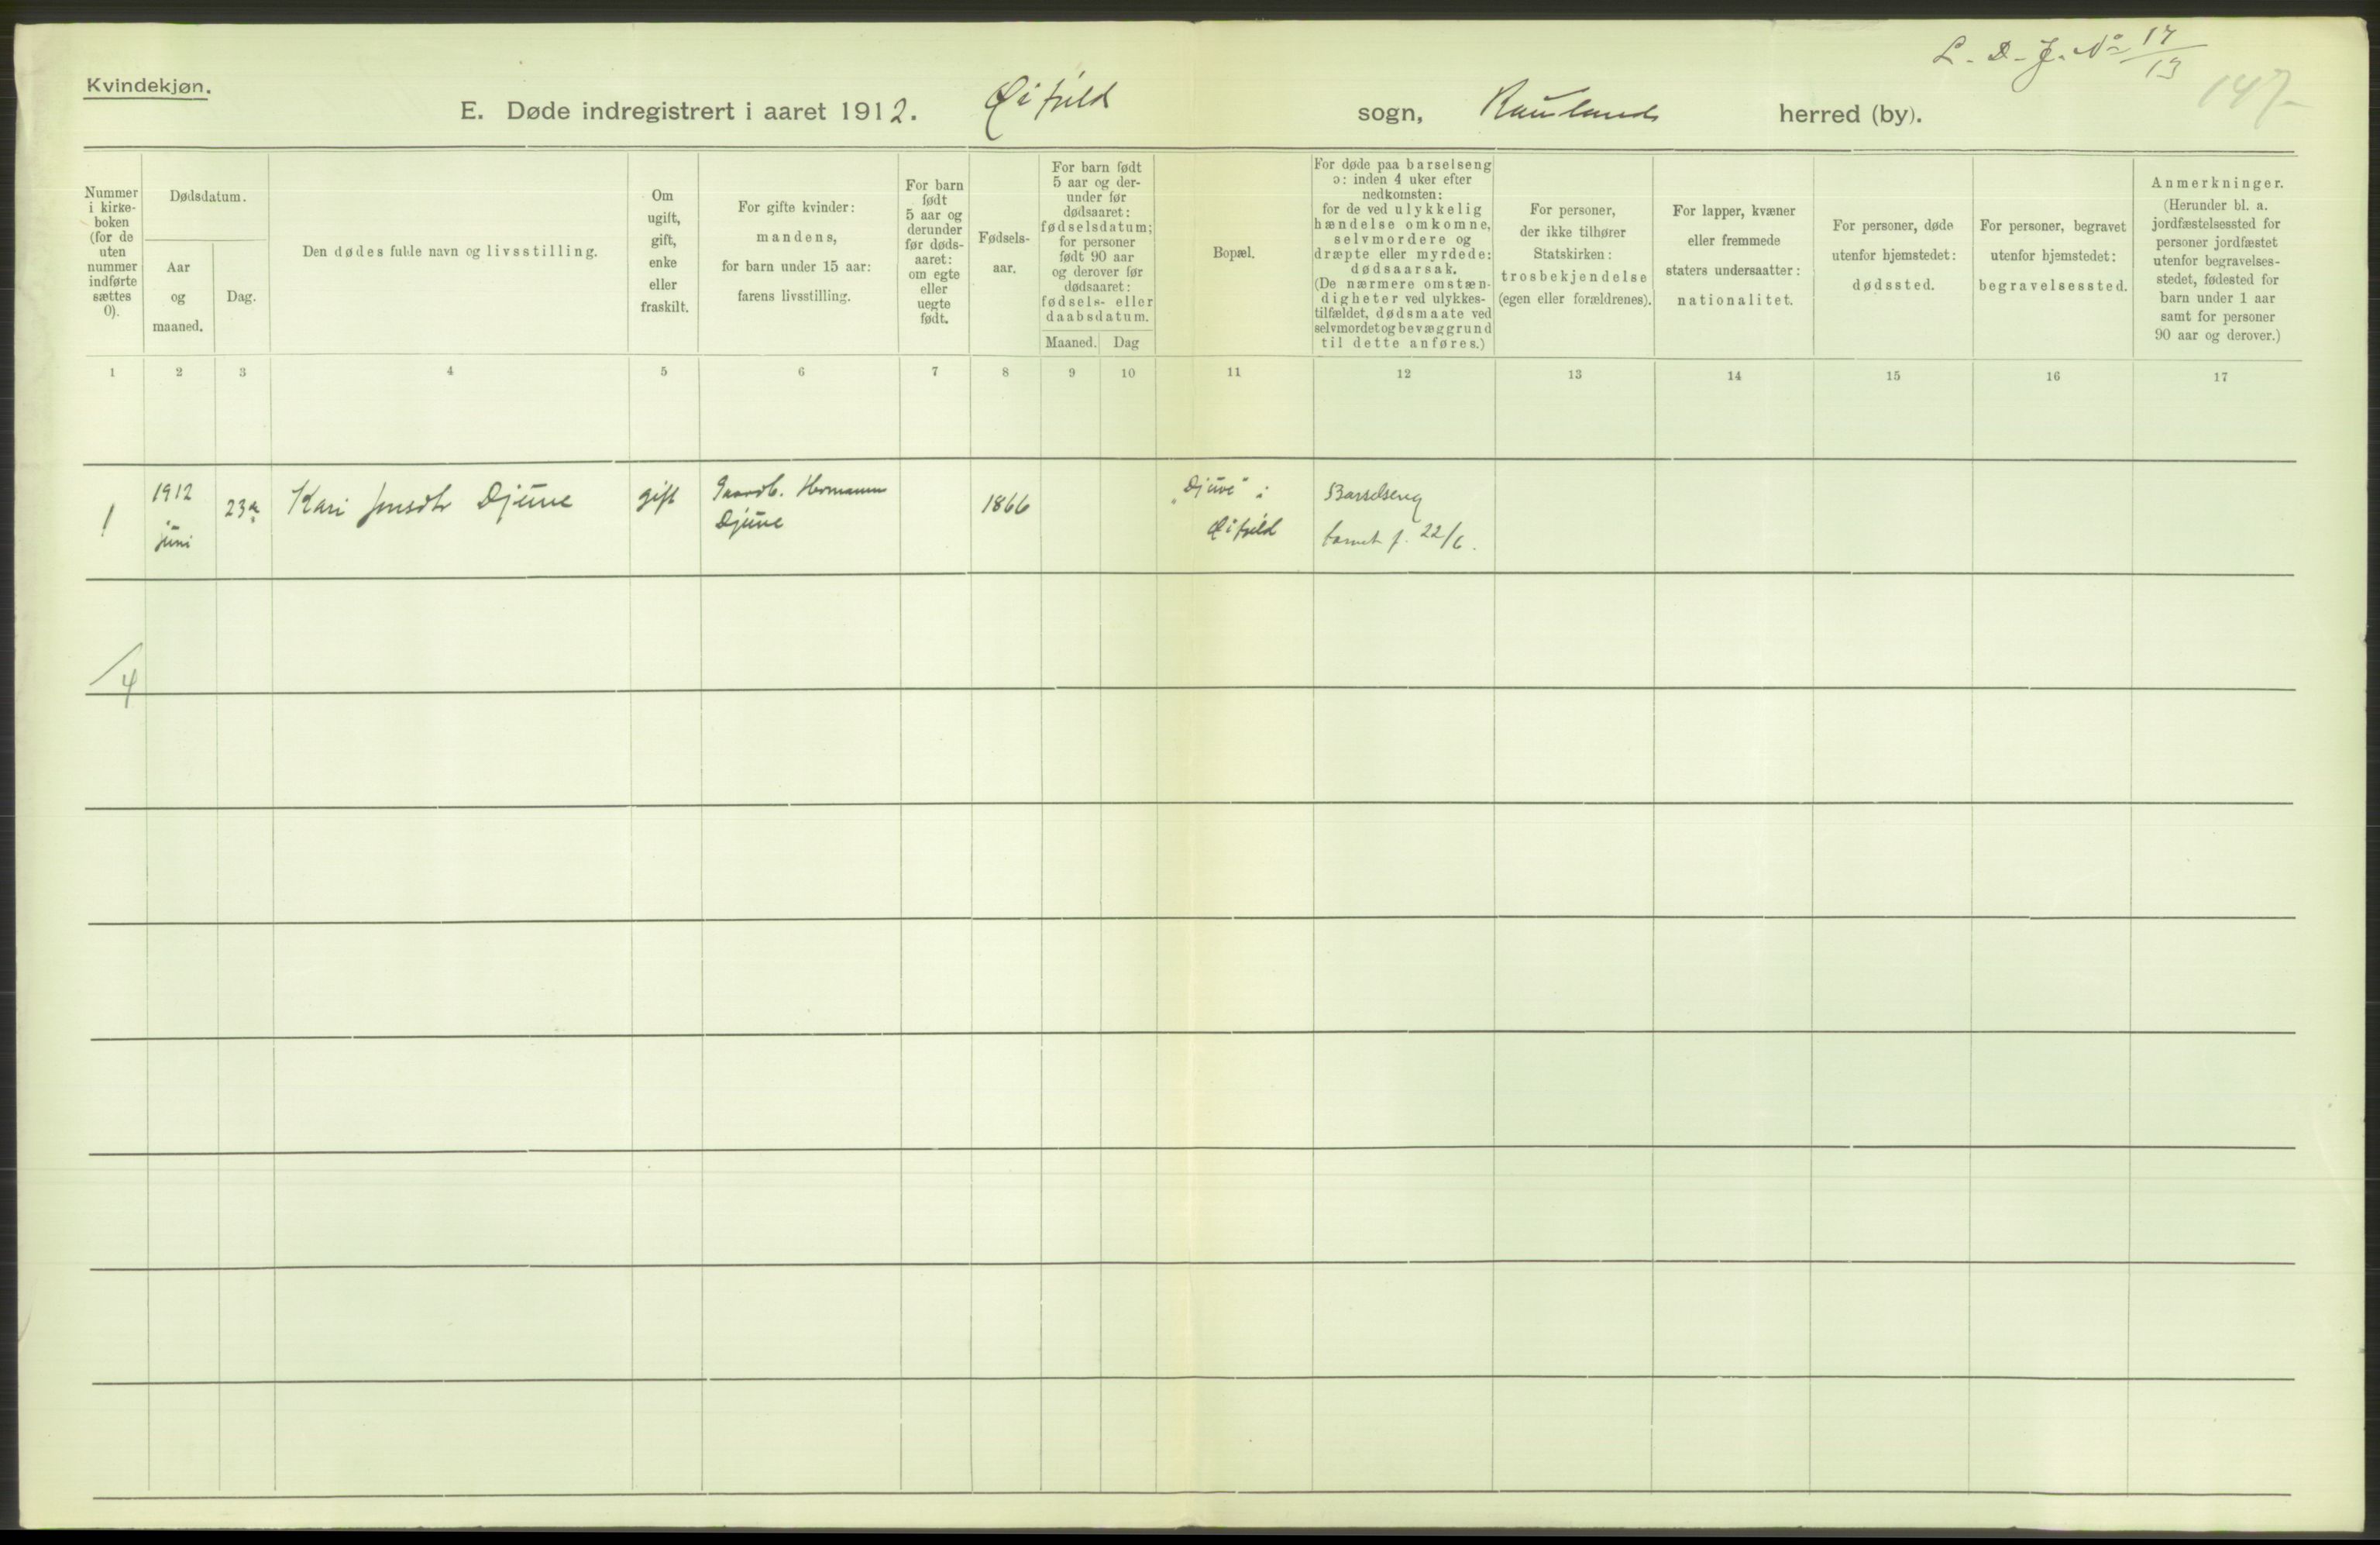 L. D. J. No 17/13
147
Kvindekjøn.
E. Døde indregistrert i aaret 1912. Øifjeld sogn, Rauland herred (by).
Nummer
i kirke-
boken
(for de
uten
nummer
indførte
sættes
0).
Dødsdatum.
Aar
og
maaned.
Dag.
Den dødes fulde navn og livsstilling.
Om
ugift,
gift,
enke
eller
fraskilt.
For gifte kvinder:
mandens,
for barn under 15 aar:
farens livsstilling.
For barn
født
5 aar og
derunder
før døds-
aaret:
om egte
eller
uegte
født.
Fødsels-
aar.
For barn født
5 aar og der-
under før
dødsaaret:
fødselsdatum;
for personer
født 90 aar
og derover før
dødsaaret:
fødsels- eller
daabsdatum.
Maaned. Dag
Bopæl.
For døde paa barselseng
ɔ: inden 4 uker efter
nedkomsten:
for de ved ulykkelig
hændelse omkomne,
selvmordere og
dræpte eller myrdede:
dødsaarsak.
(De nærmere omstæn-
digheter ved ulykkes-
tilfældet, dødsmaate ved
selvmordet og bevæggrund
til dette anføres.)
For personer,
der ikke tilhører
Statskirken:
trosbekjendelse
(egen eller forældrenes).
For lapper, kvæner
eller fremmede
staters undersaatter:
nationalitet.
For personer, døde
utenfor hjemstedet:
dødssted.
For personer, begravet
utenfor hjemstedet:
begravelsessted.
Anmerkninger.
(Herunder bl. a.
jordfæstelsessted for
personer jordfæstet
utenfor begravelses-
stedet, fødested for
barn under 1 aar
samt for personer
90 aar og derover.)
1 2 3 4 5 6 7 8 9 10 11 12 13 14 15 16 17
1
1912
juni
23de
Kari Jonsdtr Djuve
gift
Gaardb. Hermann
Djuve
1866
"Djuve" i
Øifjeld
Barselseng
barnet f. 22/6.
4